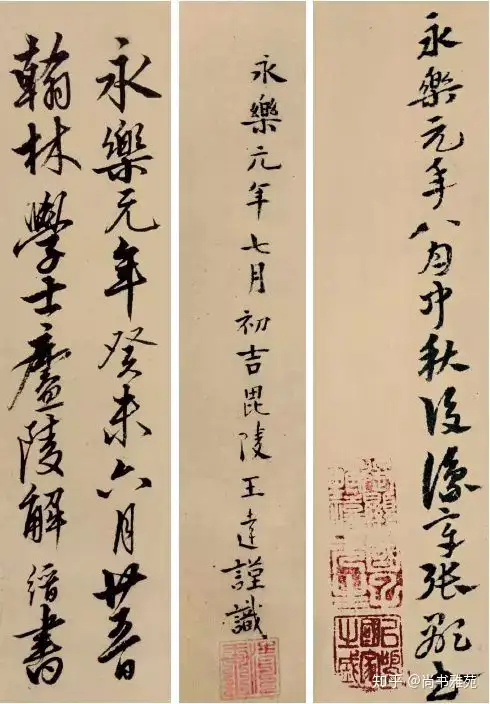 永樂元年癸未六月廿五日
翰林學士廬陵解縉書
永樂元年七月初吉毘陵王達謹識
永樂元年八月中秋後豫章張
知乎 @尚书雅苑